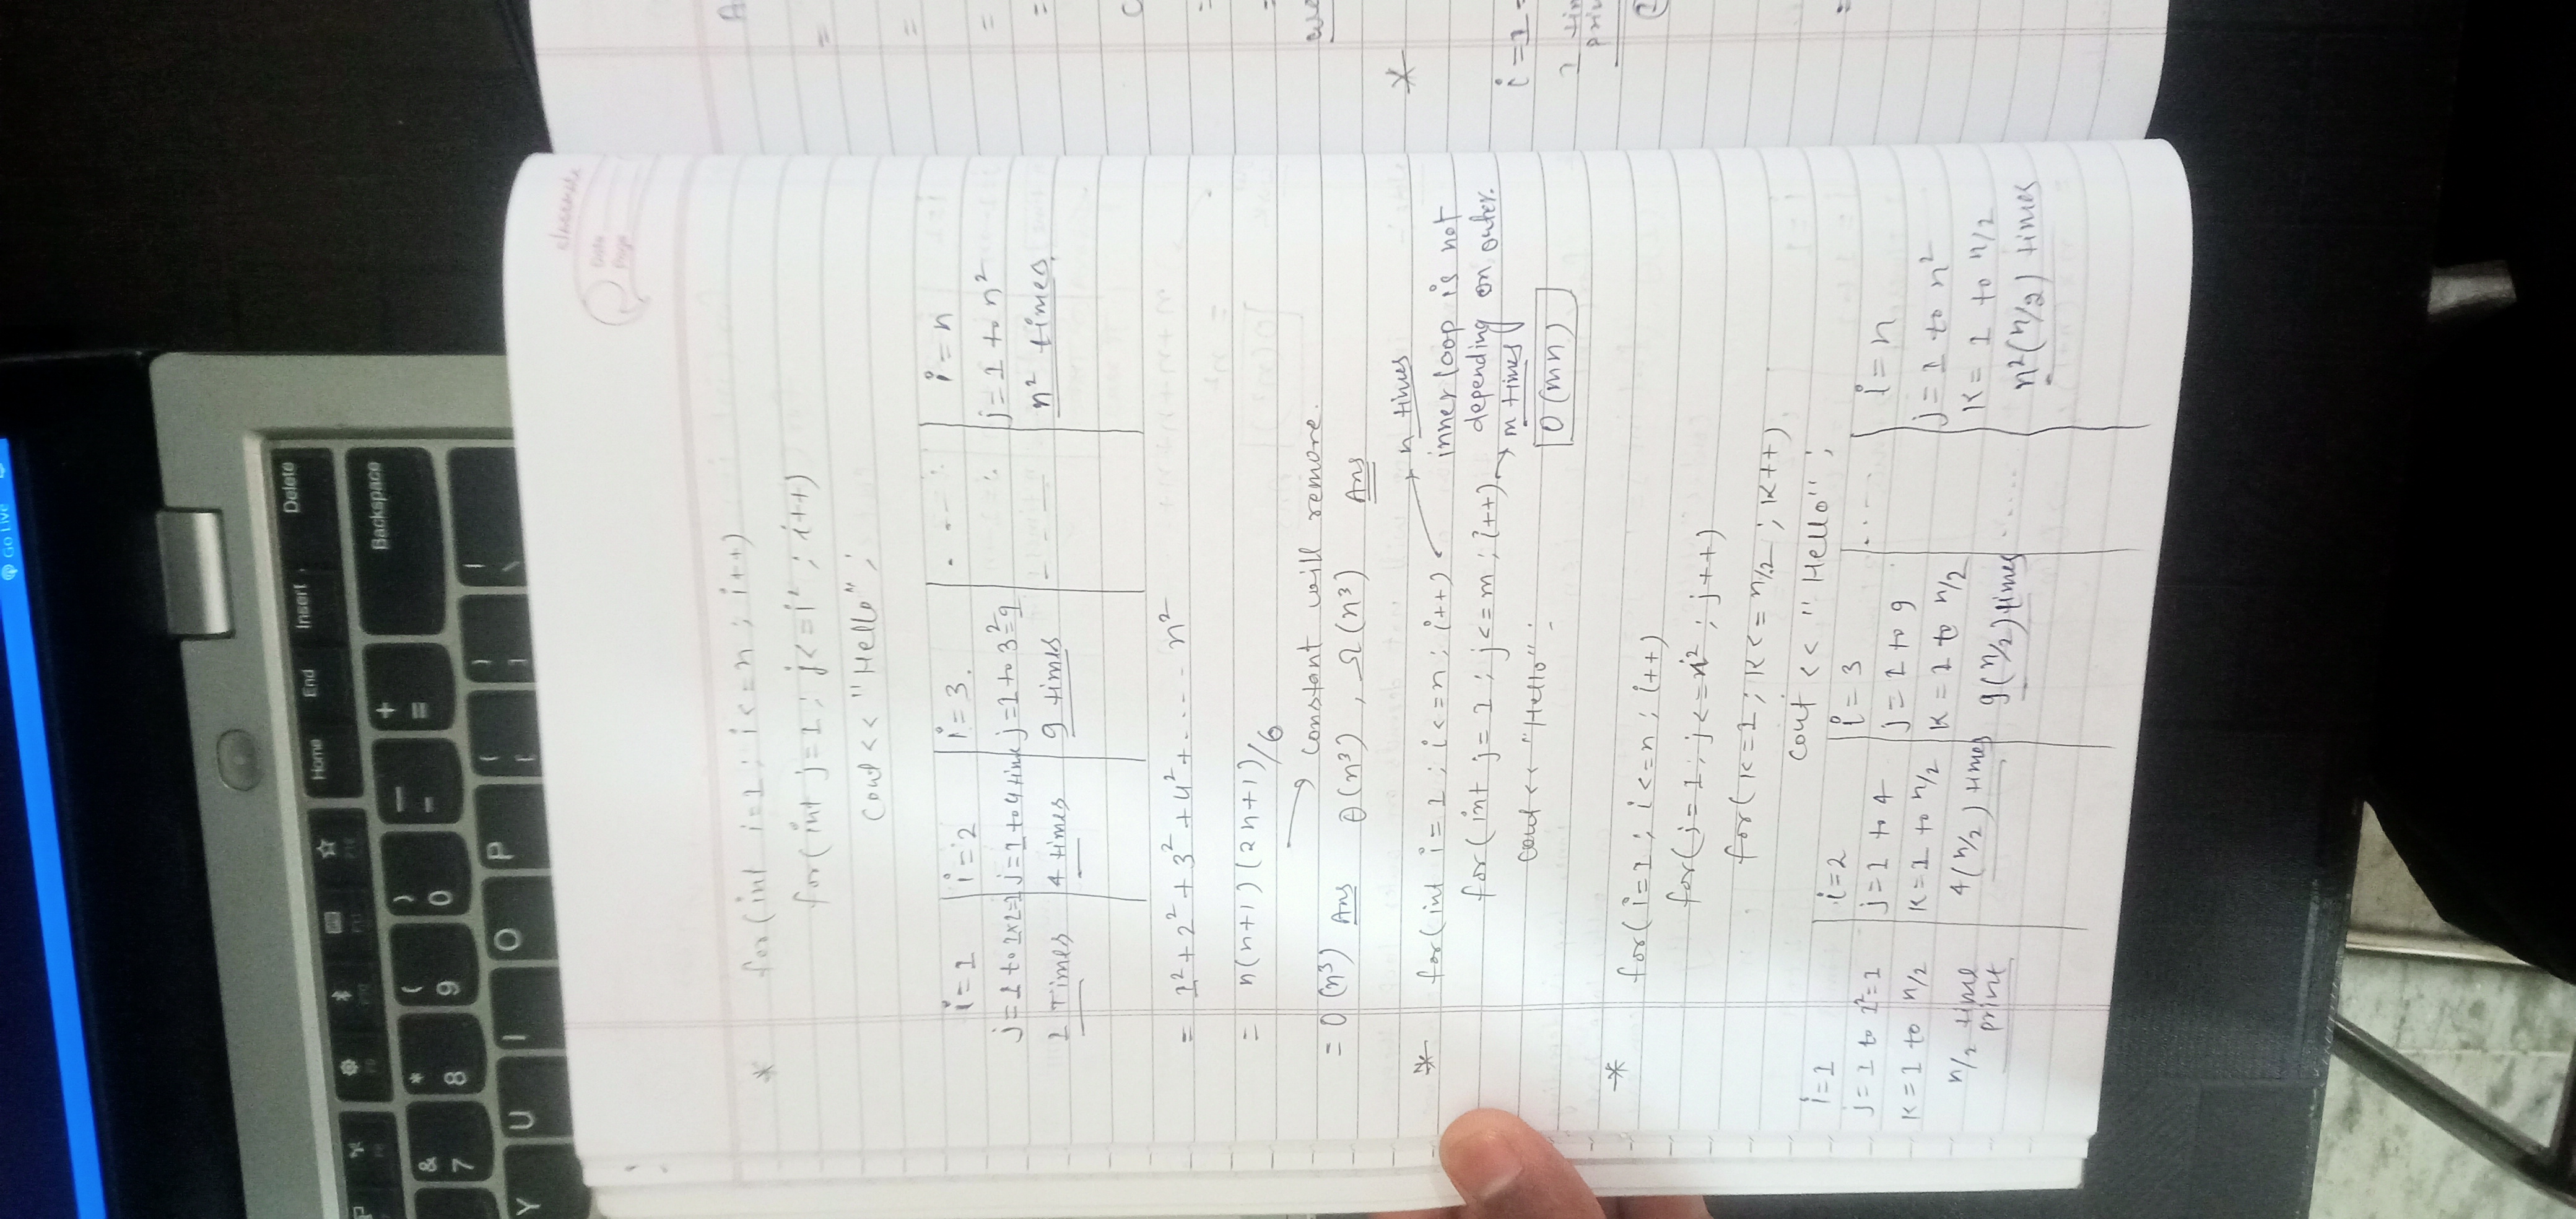 Go Live
Home End Insert Delete
& * ( ) — +
7 8 9 0 - = Backspace
Y U I O P { } |
[ ] \
classmate
Date
Page
* for(int i=1 ; i<=n ; i++)
for(int j=1 ; j<=i² ; i++)
cout<< "Hello" ;
i=1 | i=2 | i=3. | . --- | i=n
j=1 to 1×1=1 | j=1 to 4 time | j=1 to 3²=9 | | j=1 to n²
1 Times | 4 times | 9 times | - - - | n² times.
= 1²+2²+3²+4²+..... n²
= n(n+1)(2n+1)/6
→ constant will remore.
= O(n³) Ans θ(n³) , Ω(n³) Ans
* for(int i=1 ; i<=n ; i++) → n times
for(int j=1 ; j<=m ; i++) → m times
cout << "Hello" ;
inner loop is not
depending on outer.
O(mn)
* for(i=1 ; i<=n ; i++)
for(j=1 ; j<=i² ; j++)
for(k=1 ; k<=n/2 ; k++)
cout << "Hello" ;
i=1 | i=2 | i=3 | ..... | i=n
j=1 to 1²=1 | j=1 to 4 | j=1 to 9 | | j=1 to n²
k=1 to n/2 | k=1 to n/2 | k=1 to n/2 | | k=1 to n/2
n/2 time print | 4(n/2) times | 9(n/2) times | ...... | n²(n/2) times
A
=
=
=
=
*
i=1